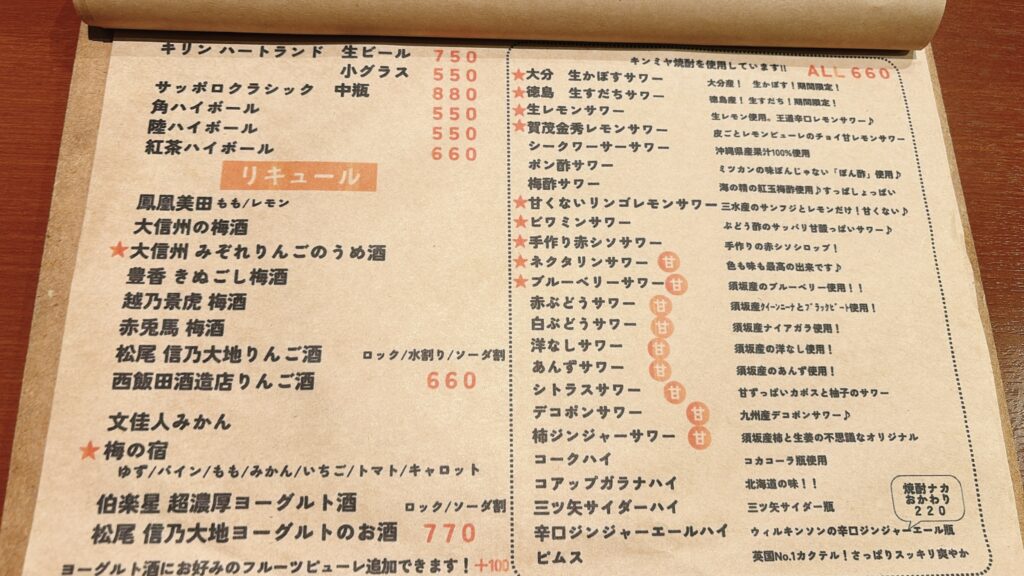 キリン ハートランド 生ビール 750
小グラス 550
サッポロクラシック 中瓶 880
角ハイボール 550
陸ハイボール 550
紅茶ハイボール 660
リキュール
鳳凰美田 もも/レモン
大信州の梅酒
★大信州 みぞれりんごのうめ酒
豊香 きぬごし梅酒
越乃景虎 梅酒
赤兎馬 梅酒
松尾 信乃大地りんご酒 ロック/水割り/ソーダ割
西飯田酒造店りんご酒 660
文佳人みかん
★梅の宿
ゆず/パイン/もも/みかん/いちご/トマト/キャロット
伯楽星 超濃厚ヨーグルト酒 ロック/ソーダ割
松尾 信乃大地ヨーグルトのお酒 770
ヨーグルト酒にお好みのフルーツピューレ追加できます！+100
キンミヤ焼酎を使用しています!! ALL 660
★大分 生かぼすサワー 大分産！ 生かぼす！期間限定！
★徳島 生すだちサワー 徳島産！生すだち！期間限定！
★生レモンサワー 生レモン使用。王道辛口レモンサワー♪
★賀茂金秀レモンサワー 皮ごとレモンピューレのチョイ甘レモンサワー
シークワーサーサワー 沖縄県産果汁100%使用
ポン酢サワー ミツカンの味ぽんじゃない「ぽん酢」使用♪
梅酢サワー 海の精の紅玉梅酢使用♪すっぱしょっぱい
★甘くないリンゴレモンサワー 三水産のサンフジとレモンだけ！甘くない♪
★ビワミンサワー ぶどう酢のサッパリ甘酸っぱいサワー♪
★手作り赤シソサワー 手作りの赤シソシロップ！
★ネクタリンサワー 甘 色も味も最高の出来です♪
★ブルーベリーサワー 甘 須坂産のブルーベリー使用！！
赤ぶどうサワー 甘 須坂産クイーンニーナとブラックビート使用！
白ぶどうサワー 甘 須坂産ナイアガラ使用！
洋なしサワー 甘 須坂産の洋なし使用！
あんずサワー 甘 須坂産のあんず使用！
シトラスサワー 甘 甘ずっぱいカボスと柚子のサワー
デコポンサワー 甘 九州産デコポンサワー♪
柿ジンジャーサワー 甘 須坂産柿と生姜の不思議なオリジナル
コークハイ コカコーラ瓶使用
コアップガラナハイ 北海道の味！！
三ツ矢サイダーハイ 三ツ矢サイダー瓶
辛口ジンジャーエールハイ ウィルキンソンの辛口ジンジャーエール瓶
ピムス 英国No.1カクテル！さっぱりスッキリ爽やか
焼酎ナカ
おかわり
220